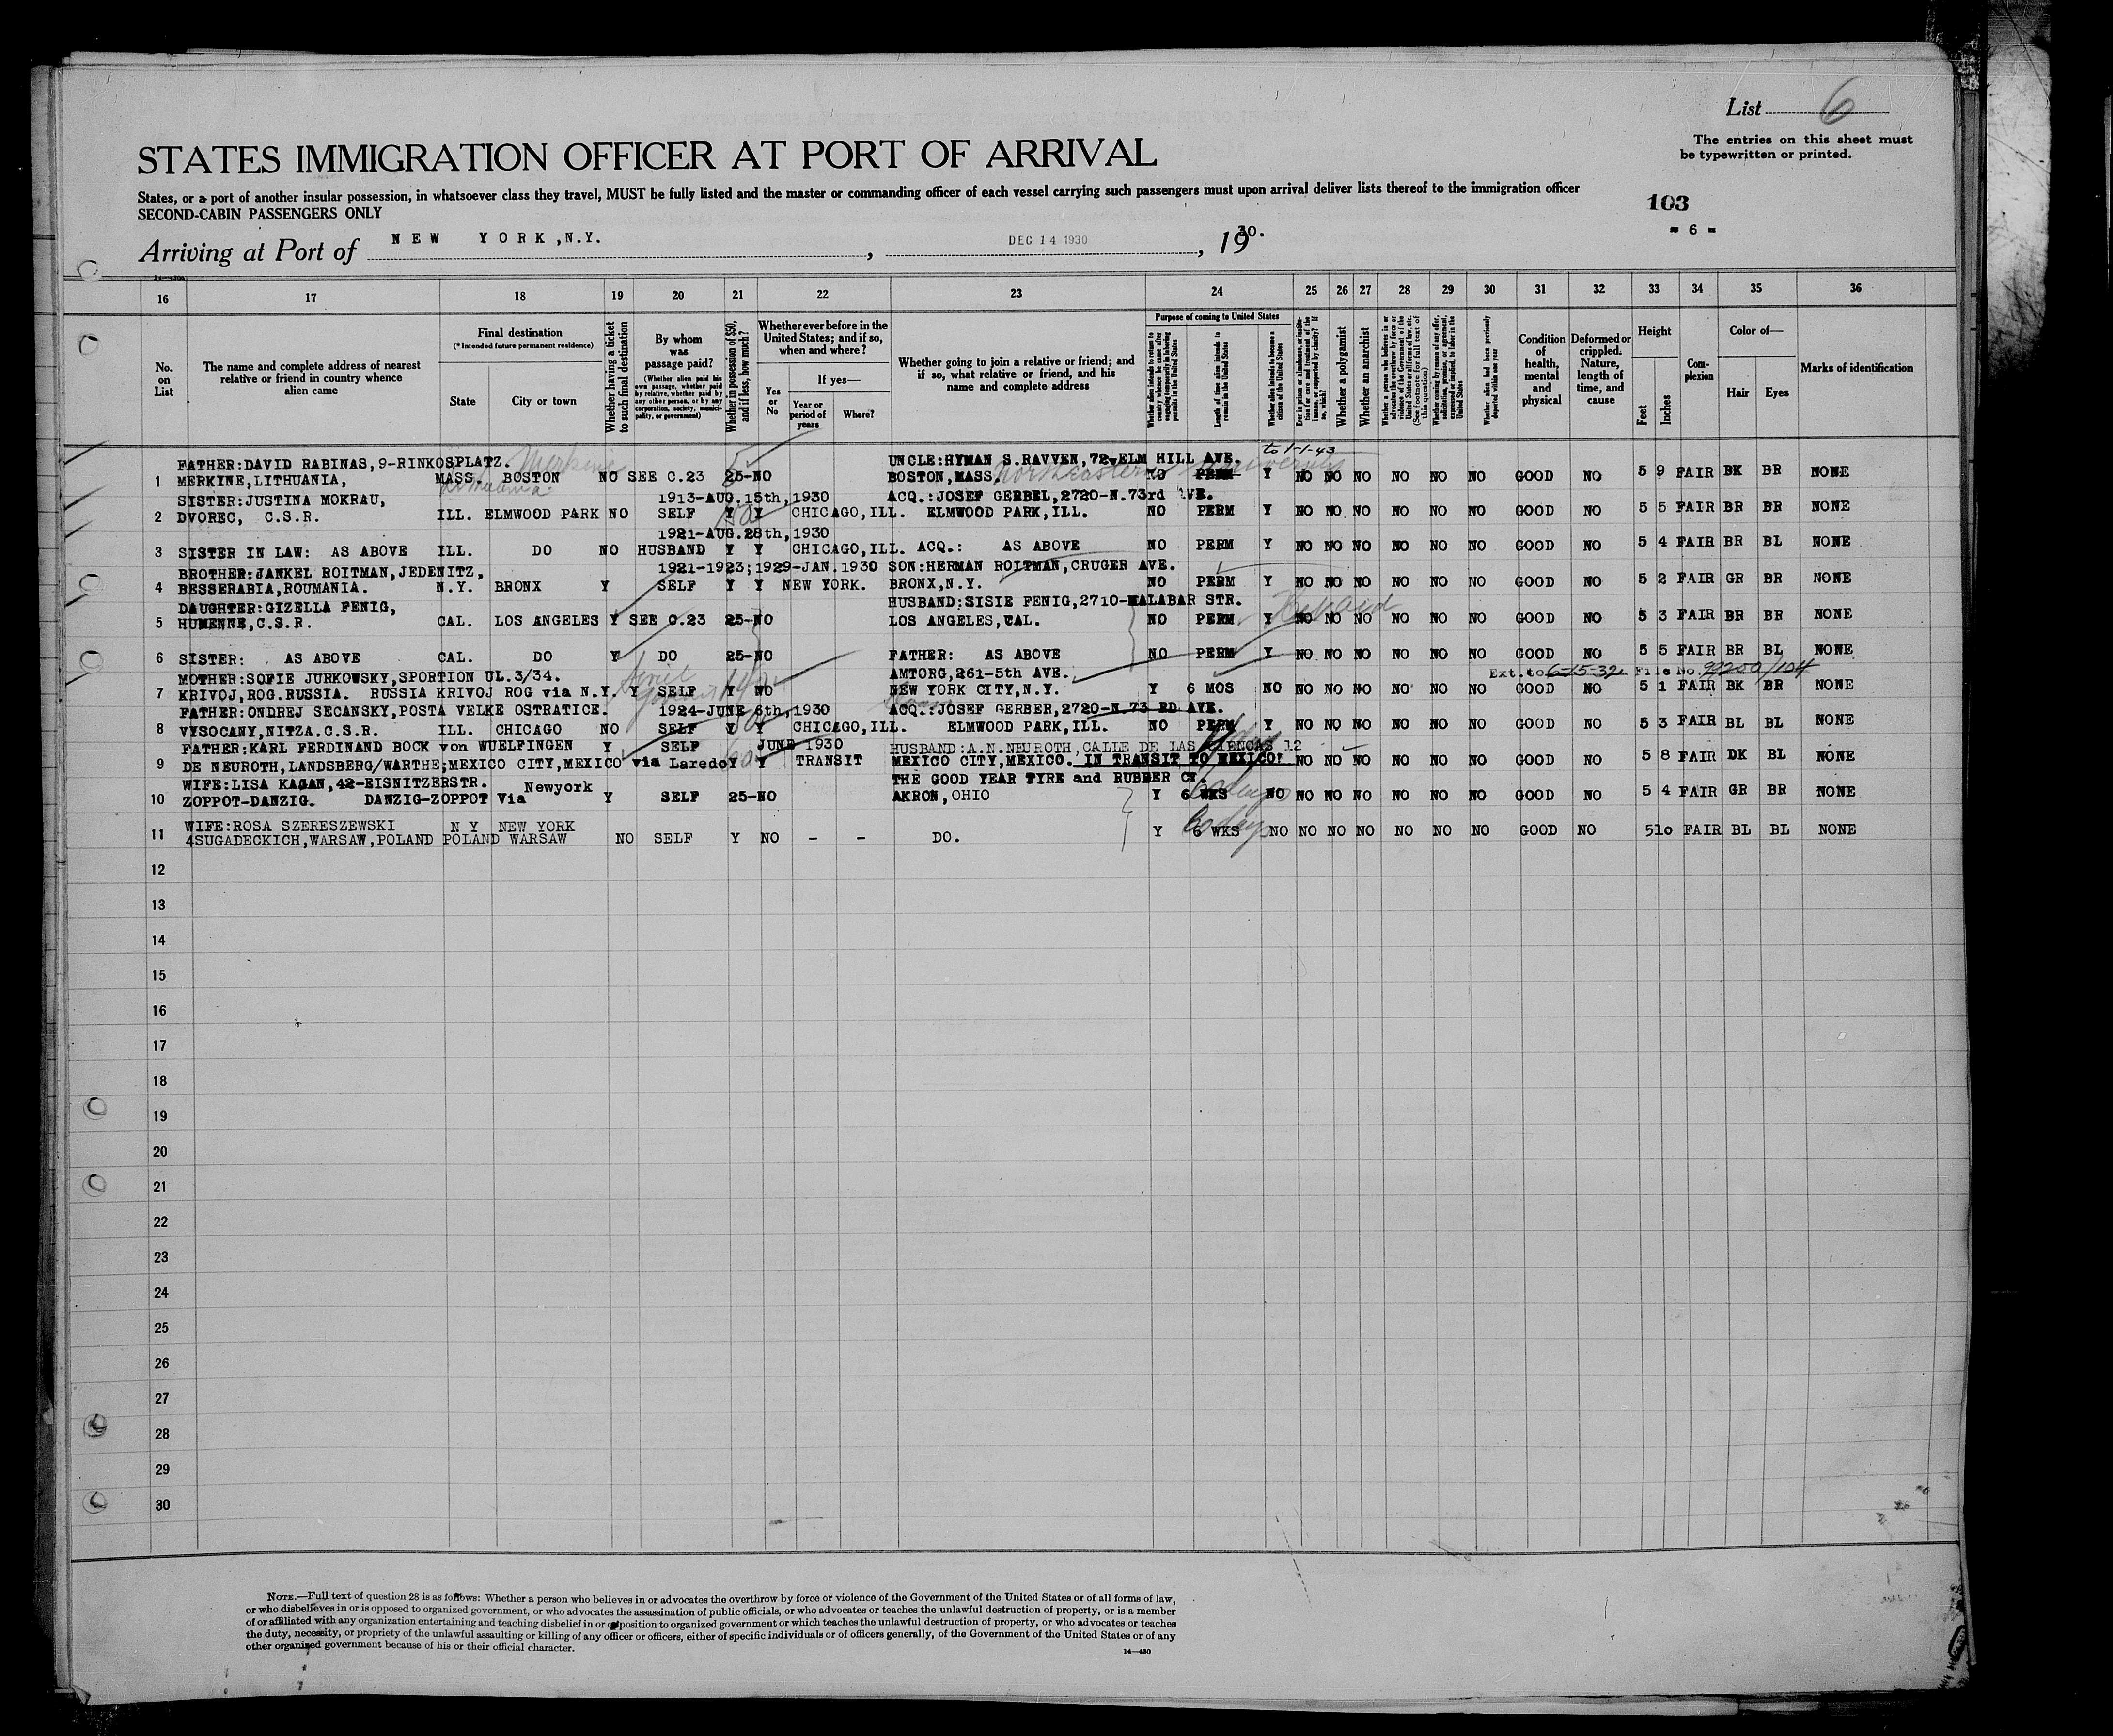 List 6
The entries on this sheet must
be typewritten or printed.
STATES IMMIGRATION OFFICER AT PORT OF ARRIVAL
States, or a port of another insular possession, in whatsoever class they travel, MUST be fully listed and the master or commanding officer of each vessel carrying such passengers must upon arrival deliver lists thereof to the immigration officer
SECOND-CABIN PASSENGERS ONLY
103
= 6 =
Arriving at Port of NEW YORK, N.Y. , DEC 14 1930 , 19 30.
16 17 18 19 20 21 22 23 24 25 26 27 28 29 30 31 32 33 34 35 36
No. on List
The name and complete address of nearest relative or friend in country whence alien came
Final destination
(*Intended future permanent residence)
State
City or town
Whether having a ticket to such final destination
By whom was passage paid?
(Whether alien paid his own passage, whether paid by relative, whether paid by any other person, or by any corporation, society, municipality, or government)
Whether in possession of $50, and if less, how much?
Whether ever before in the United States; and if so, when and where?
Yes or No
If yes—
Year or period of years
Where?
Whether going to join a relative or friend; and if so, what relative or friend, and his name and complete address
Purpose of coming to United States
Whether alien intends to return to country whence he came after engaging temporarily in laboring pursuits in the United States
Length of time alien intends to remain in the United States
Whether alien intends to become a citizen of the United States
Whether a polygamist
Whether an anarchist
Condition of health, mental and physical
Deformed or crippled. Nature, length of time, and cause
Height
Feet
Inches
Complexion
Color of—
Hair
Eyes
Marks of identification
to 1-1-43
FATHER:DAVID RABINAS,9-RINKOSPLATZ. Merkine UNCLE:HYMAN S.RAVVEN,72 ELM HILL AVE.
1 MERKINE,LITHUANIA, MASS. BOSTON NO SEE C.23 25-NO BOSTON,MASS. Northeastern University NO PERM Y NO NO NO NO NO NO GOOD NO 5 9 FAIR BK BR NONE
Lithuania
SISTER:JUSTINA MOKRAU, 1913-AUG.15th,1930 ACQ.:JOSEF GERBEL,2720-N.73rd AVE.
2 DVOREC, C.S.R. ILL. ELMWOOD PARK NO SELF Y Y CHICAGO,ILL. ELMWOOD PARK,ILL. NO PERM Y NO NO NO NO NO NO GOOD NO 5 5 FAIR BR BR NONE
1921-AUG.28th,1930
3 SISTER IN LAW: AS ABOVE ILL. DO NO HUSBAND Y Y CHICAGO,ILL. ACQ.: AS ABOVE NO PERM Y NO NO NO NO NO NO GOOD NO 5 4 FAIR BR BL NONE
BROTHER:JANKEL ROITMAN,JEDENITZ, 1921-1923;1929-JAN.1930 SON:HERMAN ROITMAN,CRUGER AVE.
4 BESSERABIA,ROUMANIA. N.Y. BRONX Y SELF Y Y NEW YORK. BRONX,N.Y. NO PERM Y NO NO NO NO NO NO GOOD NO 5 2 FAIR GR BR NONE
DAUGHTER:GIZELLA FENIG, HUSBAND:SISIE FENIG,2710-MALABAR STR.
5 HUMENNE,C.S.R. CAL. LOS ANGELES Y SEE C.23 25-NO LOS ANGELES,CAL. NO PERM Y NO NO NO NO NO NO GOOD NO 5 3 FAIR BR BR NONE
6 SISTER: AS ABOVE CAL. DO Y DO 25-NO FATHER: AS ABOVE NO PERM Y NO NO NO NO NO NO GOOD NO 5 5 FAIR BR BL NONE
MOTHER:SOFIE JURKOWSKY,SPORTION UL.3/34. AMTORG,261-5th AVE. Ext.to 6-15-32 File No. 99250/104
7 KRIVOJ,ROG.RUSSIA. RUSSIA KRIVOJ ROG via N.Y. Y SELF Y NO NEW YORK CITY,N.Y. Y 6 MOS NO NO NO NO NO NO NO GOOD NO 5 1 FAIR BK BR NONE
FATHER:ONDREJ SECANSKY,POSTA VELKE OSTRATICE. 1924-JUNE 6th,1930 ACQ.:JOSEF GERBER,2720-N.73 RD AVE.
8 VYSOCANY,NITZA.C.S.R. ILL. CHICAGO NO SELF Y Y CHICAGO,ILL. ELMWOOD PARK,ILL. NO PERM Y NO NO NO NO NO NO GOOD NO 5 3 FAIR BL BL NONE
FATHER:KARL FERDINAND BOCK von WUELFINGEN Y SELF JUNE 1930 HUSBAND:A.N.NEUROTH,CALLE DE LAS CIENCAS 12
9 DE NEUROTH,LANDSBERG/WARTHE;MEXICO CITY,MEXICO via Laredo Y Y TRANSIT MEXICO CITY,MEXICO. IN TRANSIT TO MEXICO! NO NO NO NO NO NO GOOD NO 5 8 FAIR DK BL NONE
WIFE:LISA KAGAN,42-EISNITZERSTR. Newyork THE GOOD YEAR TYRE and RUBBER CY.
10 ZOPPOT-DANZIG. DANZIG-ZOPPOT Via Y SELF 25-NO AKRON,OHIO Y 6 WKS 60 days NO NO NO NO NO NO NO GOOD NO 5 4 FAIR GR BR NONE
WIFE:ROSA SZERESZEWSKI N Y NEW YORK
11 4SUGADECKICH,WARSAW,POLAND POLAND WARSAW NO SELF Y NO - - DO. Y 6 WKS 60 days NO NO NO NO NO NO NO GOOD NO 510 FAIR BL BL NONE
12
13
14
15
16
17
18
19
20
21
22
23
24
25
26
27
28
29
30
NOTE.—Full text of question 28 is as follows: Whether a person who believes in or advocates the overthrow by force or violence of the Government of the United States or of all forms of law,
or who disbelieves in or is opposed to organized government, or who advocates the assassination of public officials, or who advocates or teaches the unlawful destruction of property, or is a member
of or affiliated with any organization entertaining and teaching disbelief in or opposition to organized government or which teaches the unlawful destruction of property, or who advocates or teaches
the duty, necessity, or propriety of the unlawful assaulting or killing of any officer or officers, either of specific individuals or of officers generally, of the Government of the United States or of any
other organized government because of his or their official character.
14—430